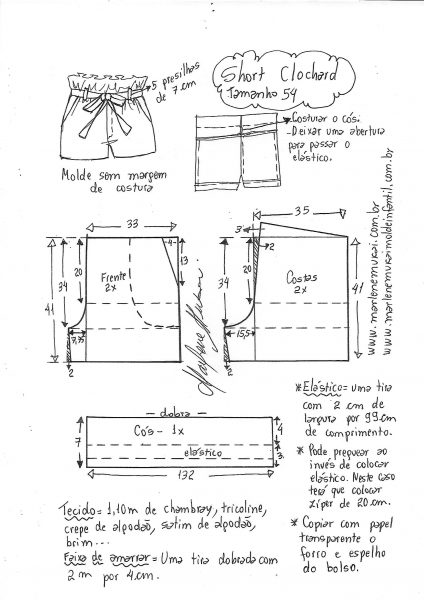 Short Clochard
Tamanho 54
5 presilhas
de 7 cm
Molde sem margem
de costura
Costurar o cós.
- Deixar uma abertura
para passar o
elástico.
www.marlenemukai.com.br
www.marlenemukaimoldeinfantil.com.br
33
4
41
34
20
13
Frente
2x
7,35
2
Marlene Mukai
35
3
2
34
20
41
Costas
2x
15,5
2
dobra
7
Cós - 1x
4
elástico
3
132
* Elástico = uma tira
com 2 cm de
largura por 99 cm
de comprimento.
* Pode preguear ao
invés de colocar
elástico. Neste caso
terá que colocar
zíper de 20 cm.
* Copiar com papel
transparente o
forro e espelho
do bolso.
Tecido = 1,10m de chambray, tricoline,
crepe de algodão, satim de algodão,
brim...
Faixa de amarrar = Uma tira dobrada com
2 m por 4 cm.